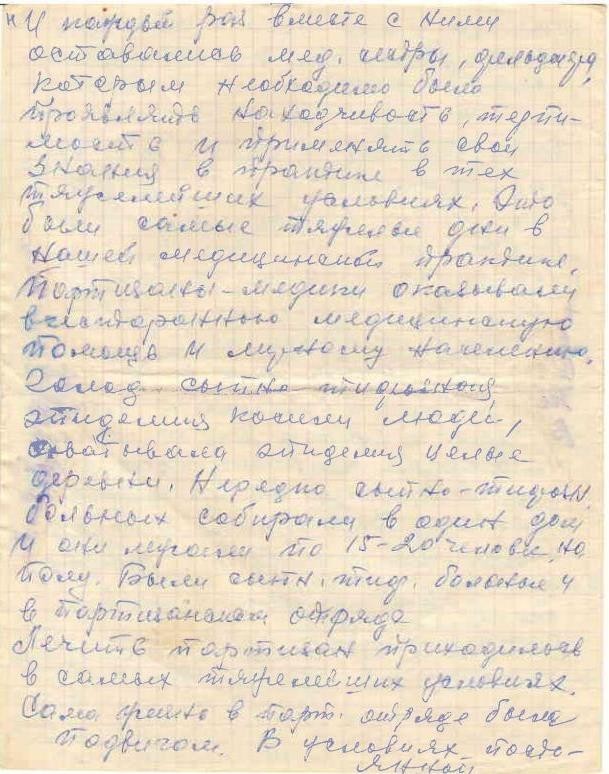 И каждый раз вместе с ними
оставались мед. сестры, фельдшера,
которым необходимо было
проявлять находчивость, терпи-
мость и применять свои
знания в практике в тех
тяжелейших условиях. Это
были самые тяжелые дни в
нашей медицинской практике.
Партизаны-медики оказывали
всестороннюю медицинскую
помощь и мирному населению.
Голод сыпно тифозная
эпидемия косили людей,
охватывала эпидемия целые
деревни. Нередко сыпно-тифозн.
больных собирали в один дом
и они лежали по 15-20 человек, на
полу. Были сыпн. тиф. больные и
в партизанском отряде
Лечить партизан приходилось
в самых тяжелейших условиях.
Сама жизнь в парт. отряде была
подвигом. В условиях посто-
янной